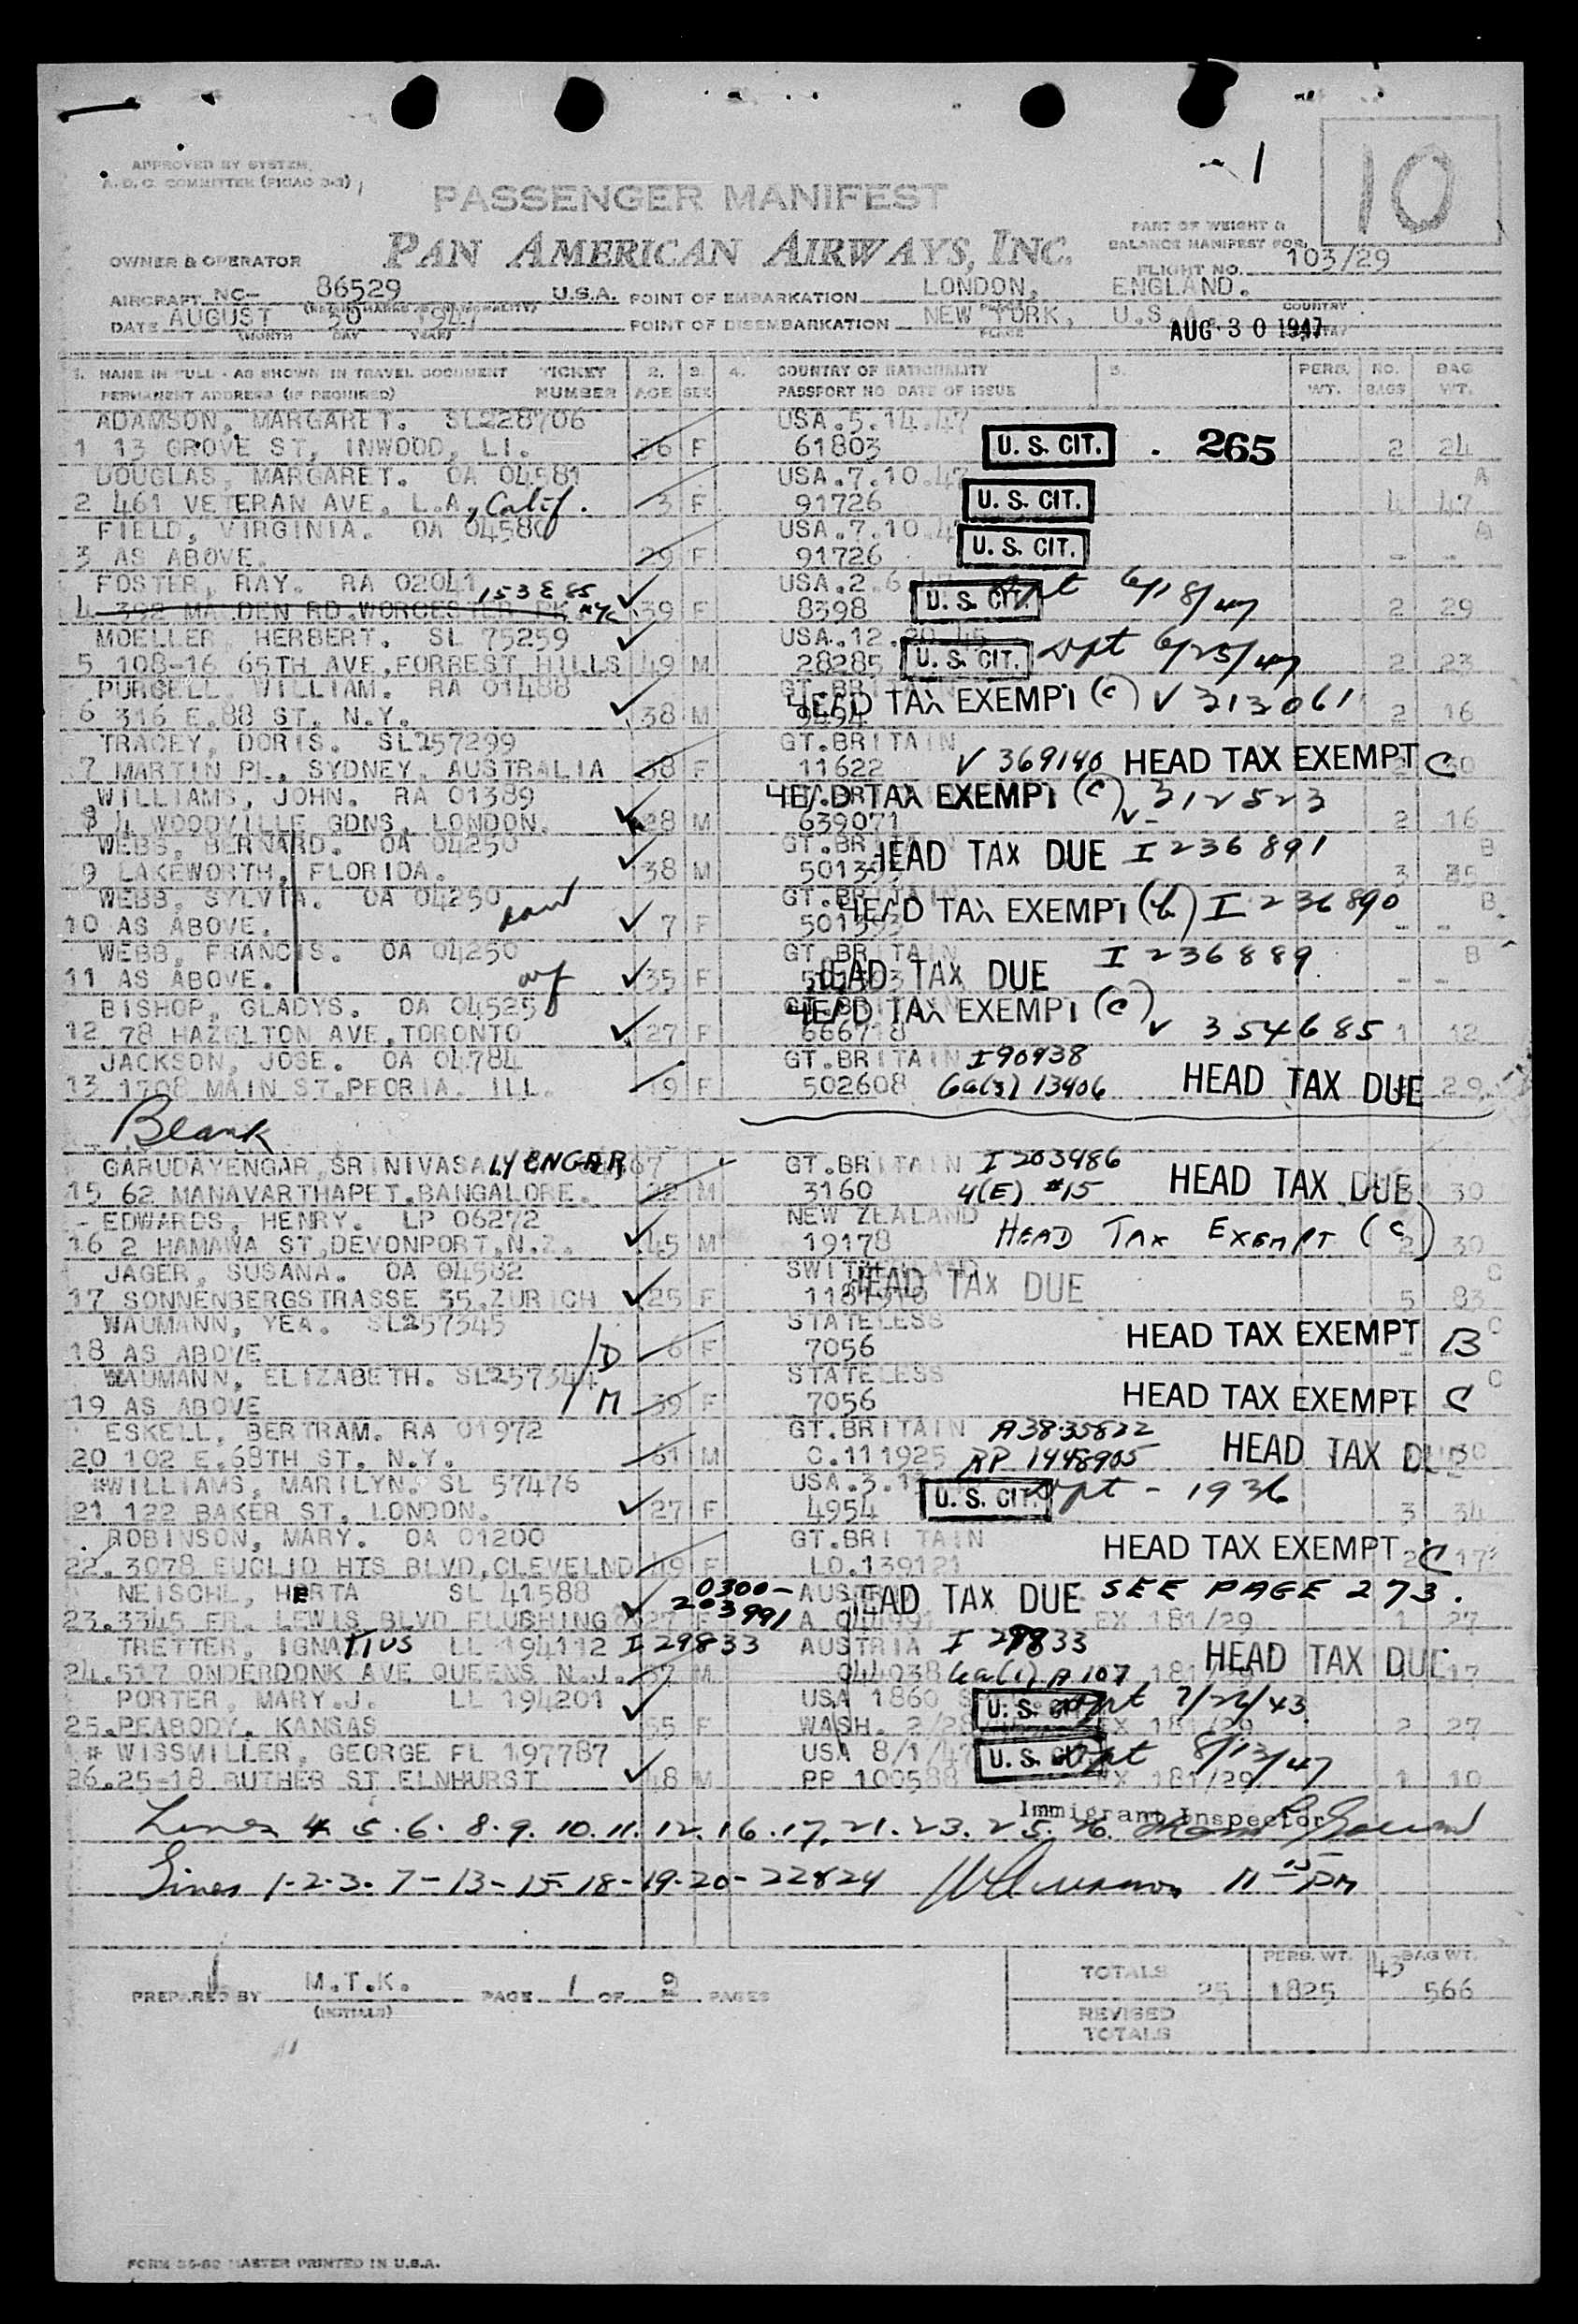 APPROVED BY SYSTEM
A.D.C. COMMITTEE (PICAO 3-3)
1
10
PASSENGER MANIFEST
PART OF WEIGHT &
BALANCE MANIFEST FOR
OWNER & OPERATOR PAN AMERICAN AIRWAYS, INC.
FLIGHT NO. 103/29
AIRCRAFT NC- 86529 U.S.A. POINT OF EMBARKATION LONDON, ENGLAND.
DATE AUGUST 30 1947 POINT OF DISEMBARKATION NEW YORK, U.S.A. COUNTRY
(MONTH DAY YEAR) PLACE AUG 30 1947
1. NAME IN FULL - AS SHOWN IN TRAVEL DOCUMENT TICKET 2. 3. 4. COUNTRY OF NATIONALITY 5. PERS. NO. BAG
PERMANENT ADDRESS (IF REQUIRED) NUMBER AGE SEX PASSPORT NO DATE OF ISSUE WT. BAGS WT.
ADAMSON, MARGARET. SL228706 USA.5.14.47
1 13 GROVE ST, INWOOD, LI. 36 F 61803 U. S. CIT. . 265 2 24
DOUGLAS, MARGARET. OA 04581 USA.7.10.47 A
2 461 VETERAN AVE, L.A, Calif. 3 F 91726 U. S. CIT. 4 47
FIELD, VIRGINIA. OA 04580 USA.7.10.4 A
3 AS ABOVE. 29 F 91726 U. S. CIT. - -
FOSTER, RAY. RA 02041 153 E 85 USA.2.6
4 392 MALDEN RD.WORCESTER PK NYC 39 F 8398 U. S. CIT. Dpt 6/18/47 2 29
MOELLER, HERBERT. SL 75259 USA.12.20.45
5 108-16 65TH AVE,FORREST HILLS 49 M 28285 U. S. CIT. Dpt 6/25/47 2 23
PURCELL WILLIAM. RA 01488 GT.BRITAIN
6 316 E.88 ST. N.Y. 38 M 9494 HEAD TAX EXEMPT (C) V 313061 2 16
TRACEY, DORIS. SL257299 GT.BRITAIN
7 MARTIN PL, SYDNEY, AUSTRALIA 38 F 11622 V 369140 HEAD TAX EXEMPT C 30
WILLIAMS, JOHN. RA 01389 HEAD TAX EXEMPT (C) V- 312523
8 4 WOODVILLE GDNS, LONDON. 28 M 639071 2 16
WEBB, BERNARD. OA 04250 GT.BR B
9 LAKEWORTH, FLORIDA. 38 M 501393 HEAD TAX DUE I 236891 3 35
WEBB, SYLVIA. OA 04250 GT.BRITAIN B
10 AS ABOVE. 7 F 501393 HEAD TAX EXEMPT (b) I 236890 - -
WEBB, FRANCIS. OA 04250 GT.BRITAIN I 236889 B
11 AS ABOVE. 35 F HEAD TAX DUE - -
BISHOP, GLADYS. OA 04525 HEAD TAX EXEMPT (C)
12 78 HAZELTON AVE,TORONTO 27 F 666718 V 354685 1 12
JACKSON, JOSE. OA 04784 GT.BRITAIN I90938
13 1708 MAIN ST.PEORIA. ILL. 19 F 502608 6a(3) 13406 HEAD TAX DUE 29
Blank
GARUDAYENGAR SRINIVASA IYENGAR GT.BRITAIN I 203486
15 62 MANAVARTHAPET.BANGALORE. 22 M 3160 4(E) #15 HEAD TAX DUE 30
EDWARDS, HENRY. LP 06272 NEW ZEALAND
16 2 HAMAWA ST,DEVONPORT,N.Z. 45 M 19178 HEAD TAX EXEMPT (C) 2 30
JAGER, SUSANA. OA 04582 SWITZERLAND C
17 SONNENBERGSTRASSE 55.ZURICH 25 F HEAD TAX DUE 5 83
WAUMANN, YEA. SL257345 STATELESS C
18 AS ABOVE D 6 F 7056 HEAD TAX EXEMPT B
WAUMANN, ELIZABETH. SL257344 STATELESS C
19 AS ABOVE M 39 F 7056 HEAD TAX EXEMPT C
ESKELL, BERTRAM. RA 01972 GT.BRITAIN A3835822
20 102 E.68TH ST. N.Y. 61 M C.111925 RP 1448905 HEAD TAX DUE 30
#WILLIAMS, MARILYN. SL 57476 USA.3.1
21 122 BAKER ST. LONDON. 27 F 4954 U. S. CIT. Dpt - 1936 3 34
ROBINSON, MARY. OA 01200 GT.BRITAIN
22.3078 EUCLID HTS BLVD,CLEVELND 49 F LO.139121 HEAD TAX EXEMPT C 2 17
NEISCHL, HERTA SL 41588 0300- AUSTRIA HEAD TAX DUE SEE PAGE 273.
23.3345 FR. LEWIS BLVD FLUSHING 27 F 203991 EX 181/29 1 27
TRETTER, IGNATIUS LL 194112 I 29833 AUSTRIA I 29833
24.517 ONDERDONK AVE QUEENS N.J. 37 M 044038 6a(1) A 107 181/29 HEAD TAX DUE 17
PORTER, MARY.J. LL 194201 USA 1860
25.PEABODY, KANSAS 55 F WASH. 2/28 U. S. CIT. Dpt 7/26/43 EX 181/29 2 27
# WISSMILLER, GEORGE FL 197787 USA 8/1/47
26.25-18 BUTHER ST ELNHURST 48 M PP 100588 U. S. CIT. Dpt 8/13/47 EX 181/29 1 10
Immigrant Inspector
Lines 4. 5. 6. 8. 9. 10. 11. 12. 16. 17. 21. 23. 25. 26.
Lines 1-2-3-7-13-15-18-19-20-22&24 11 15 PM
PREPARED BY M.T.K. PAGE 1 OF 2 PAGES
(INITIALS)
PERS. WT. 43 BAG WT.
TOTALS 25 1825 566
REVISED
TOTALS
FORM 36-82 MASTER PRINTED IN U.S.A.